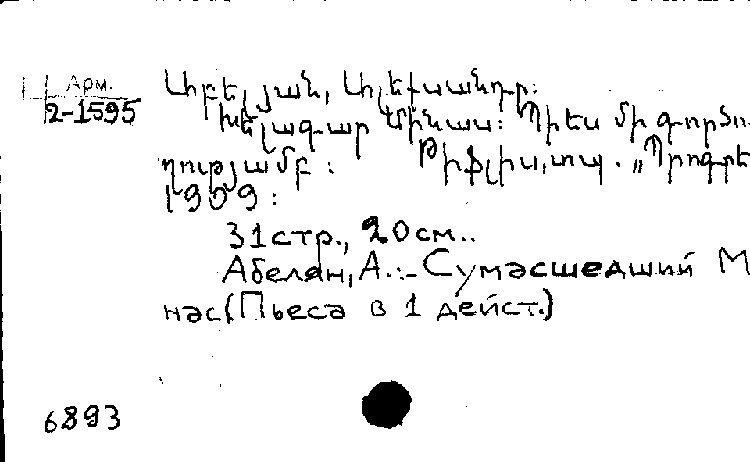 Арм.
2-1595
Աբելյան, Ալեքսանդր:
Խելագար Մինաս: Պիես մի գործո-
ղությամբ: Թիֆլիս, տպ. „Պրոգրե
1909:
31стр., 20см..
Абелян, А.:- Сумасшедший М
нас(Пьеса в 1 дейст.)
6893